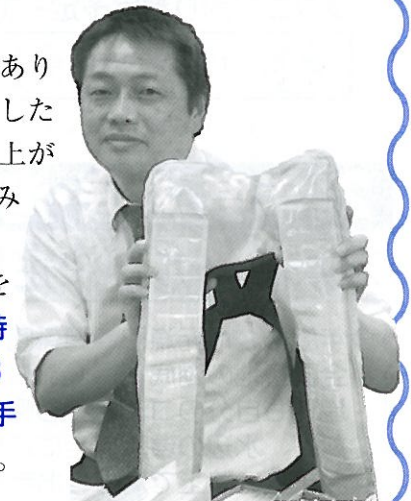 あり
した
上が
み
を
時
手
。